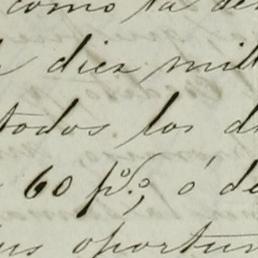 como la de
diez mill
todos los d
60 p%, ó de
us oportun